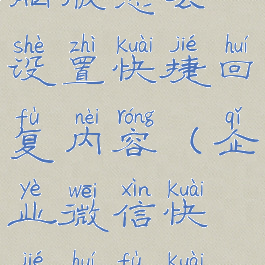 shè zhì kuài jié huí
设置快捷回
fù nèi róng qǐ
复内容（企
yè wēi xìn kuài
业微信快
jié huí fù kuài